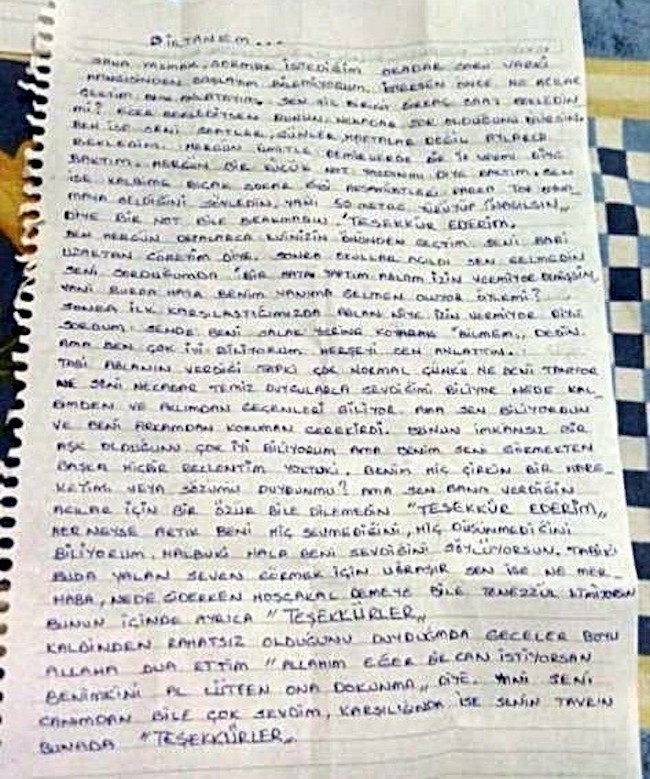 BİRTANEM...
SANA YAZMAK, SORMAK İSTEDİĞİM OKADAR SORU VARKİ
HANGİSİNDEN BAŞLAYIM BİLEMİYORUM. İSTERSEN ÖNCE NE
SEN HİÇ BİRİNİ BİRKAÇ SAAT BEKLEDİN
Mİ? EĞER BEKLEDİYSEN BUNUN NEKADAR ZOR OLDUĞUNU BİLİRSİN.
BEN İSE SENİ SAATLER, GÜNLER, HAFTALAR DEĞİL AYLARCA
BEKLEDİM. HERGÜN ÜMİTLE DEMİRLERDE BİR İP VARMI DİYE
BAKTIM. HERGÜN BİR KÜÇÜK NOT YAZDINMI DİYE BAKTIM. SEN
İSE KALBİME BIÇAK SOKAR GİBİ KADAR TOP
MAYA GELDİĞİNİ SÖYLEDİN, YANİ 50 METRE YÜRÜYÜP "NASILSIN"
DİYE BİR NOT BİLE BIRAKMADIN. "TEŞEKKÜR EDERİM.
BEN HERGÜN DEFALARCA EVİNİZİN ÖNÜNDEN GEÇTİM SENİ BARİ
UZAKTAN GÖREYİM DİYE. SONRA OKULLAR AÇILDI SEN GELMEDİN
SENİ SORDUĞUMDA "BİR HATA YAPTIM ABLAM İZİN VERMİYOR DEMİŞSİN,
YANİ BURDA HATA BENİM YANIMA GELMEN OLUYOR ÖYLEMİ?
SONRA İLK KARŞILAŞTIĞIMIZDA ABLAN NİYE İZİN VERMİYOR DİYE
SORDUM. SENDE BENİ SALAK YERİNE KOYARAK "BİLMEM" DEDİN.
AMA BEN ÇOK İYİ BİLİYORUM HERŞEYİ SEN ANLATTIN.
TABİ ABLANIN VERDİĞİ TEPKİ ÇOK NORMAL ÇÜNKÜ NE BENİ TANIYOR
NE SENİ NEKADAR TEMİZ DUYGULARLA SEVDİĞİMİ BİLİYOR NEDE KAL-
BİMDEN VE AKLIMDAN GEÇENLERİ BİLİYOR. AMA SEN BİLİYORDUN
VE BENİ ARKAMDAN KORUMAN GEREKİRDİ. BUNUN İMKANSIZ BİR
AŞK OLDUĞUNU ÇOK İYİ BİLİYORUM AMA BENİM SENİ GÖRMEKTEN
BAŞKA HİÇBİR BEKLENTİM YOKTUKİ. BENİM HİÇ ÇİRKİN BİR HARE-
KETİMİ VEYA SÖZÜMÜ DUYDUNMU? AMA SEN BANA VERDİĞİN
ACILAR İÇİN BİR ÖZÜR BİLE DİLEMEDİN "TEŞEKKÜR EDERİM"
HER NEYSE ARTIK BENİ HİÇ SEVMEDİĞİNİ, HİÇ DÜŞÜNMEDİĞİNİ
BİLİYORUM, HALBUKİ HALA BENİ SEVDİĞİNİ SÖYLÜYORSUN. TABİKİ
BUDA YALAN SEVEN GÖRMEK İÇİN UĞRAŞIR SEN İSE NE MER-
HABA, NEDE GİDERKEN HOŞÇAKAL DEMEYE BİLE TENEZZÜL ETMİYORSUN
BUNUN İÇİNDE AYRICA "TEŞEKKÜRLER"
KALBİNDEN RAHATSIZ OLDUĞUNU DUYDUĞMDA GECELER BOYU
ALLAHA DUA ETTİM "ALLAHIM EĞER BİR CAN İSTİYORSAN
BENİMKİNİ AL LÜTFEN ONA DOKUNMA" DİYE. YANİ SENİ
CANIMDAN BİLE ÇOK SEVDİM, KARŞILIĞINDA İSE SENİN TAVRIN
BUNADA "TEŞEKKÜRLER".